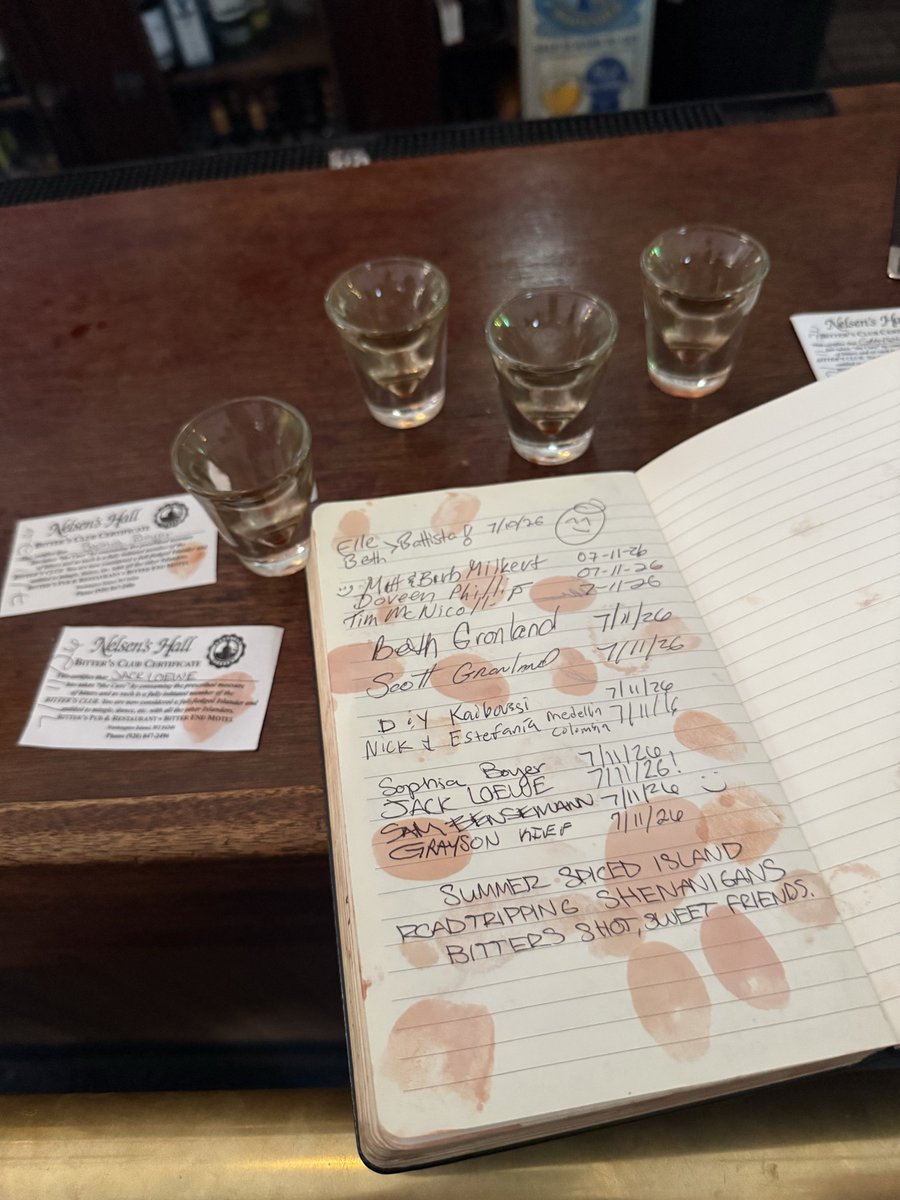 Nelsen's Hall
BITTER'S CLUB CERTIFICATE
BITTER'S PUB & RESTAURANT • BITTER END MOTEL
Nelsen's Hall
BITTER'S CLUB CERTIFICATE
This certifies that JACK LOEWE
has taken "the Cure" by consuming the prescribed measure
of bitters and as such is a fully initiated member of the
BITTER'S CLUB. You are now considered a full-fledged Islander and
entitled to mingle, dance, etc. with all the other Islanders.
BITTER'S PUB & RESTAURANT • BITTER END MOTEL
Washington Island, WI 54246
Phone (920) 847-2496
Nelsen's Ha
BITTER'S CLUB CERTIF
Elle
Beth > Battista! 7/10/26
Matt & Barb Milkert 07-11-26
Doreen Phillip 07-11-26
Tim McNicoll 7-11-26
Beth Gronland 7/11/26
Scott Gronland 7/11/26
Kaiboussi 7/11/26
NICK & Estefania Medellin Colombia 7/11/26
Sophia Boyer 7/11/26!
JACK LOEWE 7/11/26!
SAM BENSEMANN 7/11/26
GRAYSON KIEF 7/11/26
SUMMER SPICED ISLAND
ROADTRIPPING SHENANIGANS
BITTERS SHOT, SWEET FRIENDS.